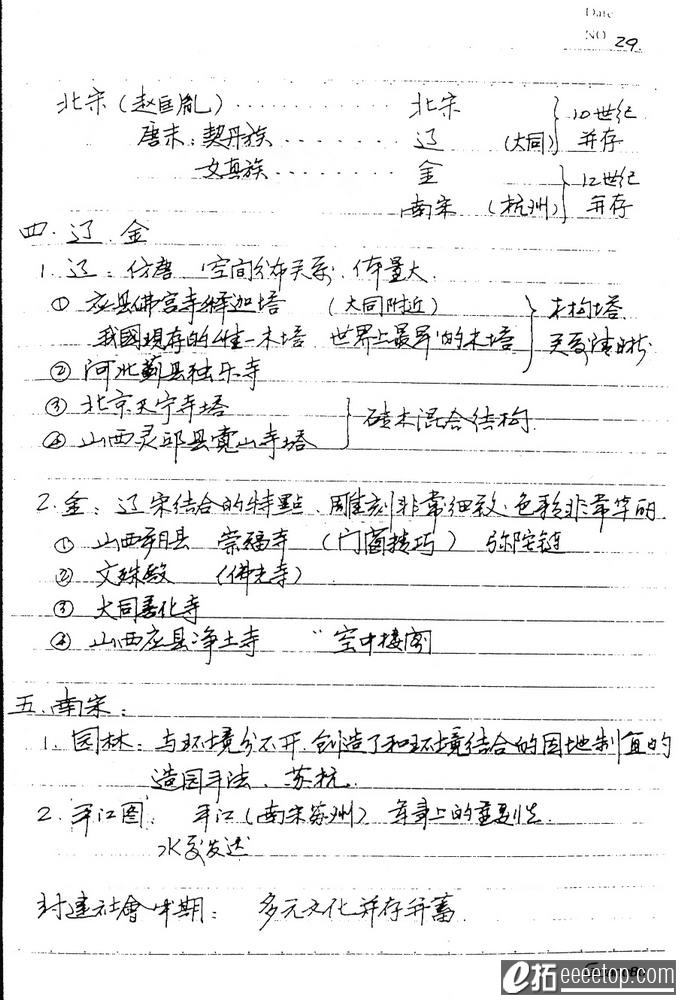 Date
NO 29.
北宋（赵匡胤）·········· 北宋 } 10世纪
唐末：契丹族········ 辽 （大同） 并存
女真族·········· 金 } 12世纪
南宋 （杭州） 并存
四. 辽. 金
1. 辽：仿唐. 空间分布关系. 体量大.
① 应县佛宫寺释迦塔 （大同附近） } 木构塔
我國現存的唯一木塔. 世界上最早的木塔 关系清晰
② 河北蓟县独乐寺
③ 北京天宁寺塔 } 砖木混合结构.
④ 山西灵邱县觉山寺塔
2. 金：辽宋结合的特點. 雕刻非常细致. 色彩非常华丽
① 山西朔县 崇福寺 （门窗精巧） 弥陀
② 文殊殿 （佛光寺）
③ 大同善化寺
④ 山西应县净土寺 "空中楼阁
五. 南宋：
1. 园林：与环境分不开. 创造了和环境结合的因地制宜的
造园手法. 苏杭.
2. 平江图： 平江（南宋苏州） 上的重要性.
水系发达
封建社會中期： 多元文化并存并蓄.
e拓 eeeetop.com